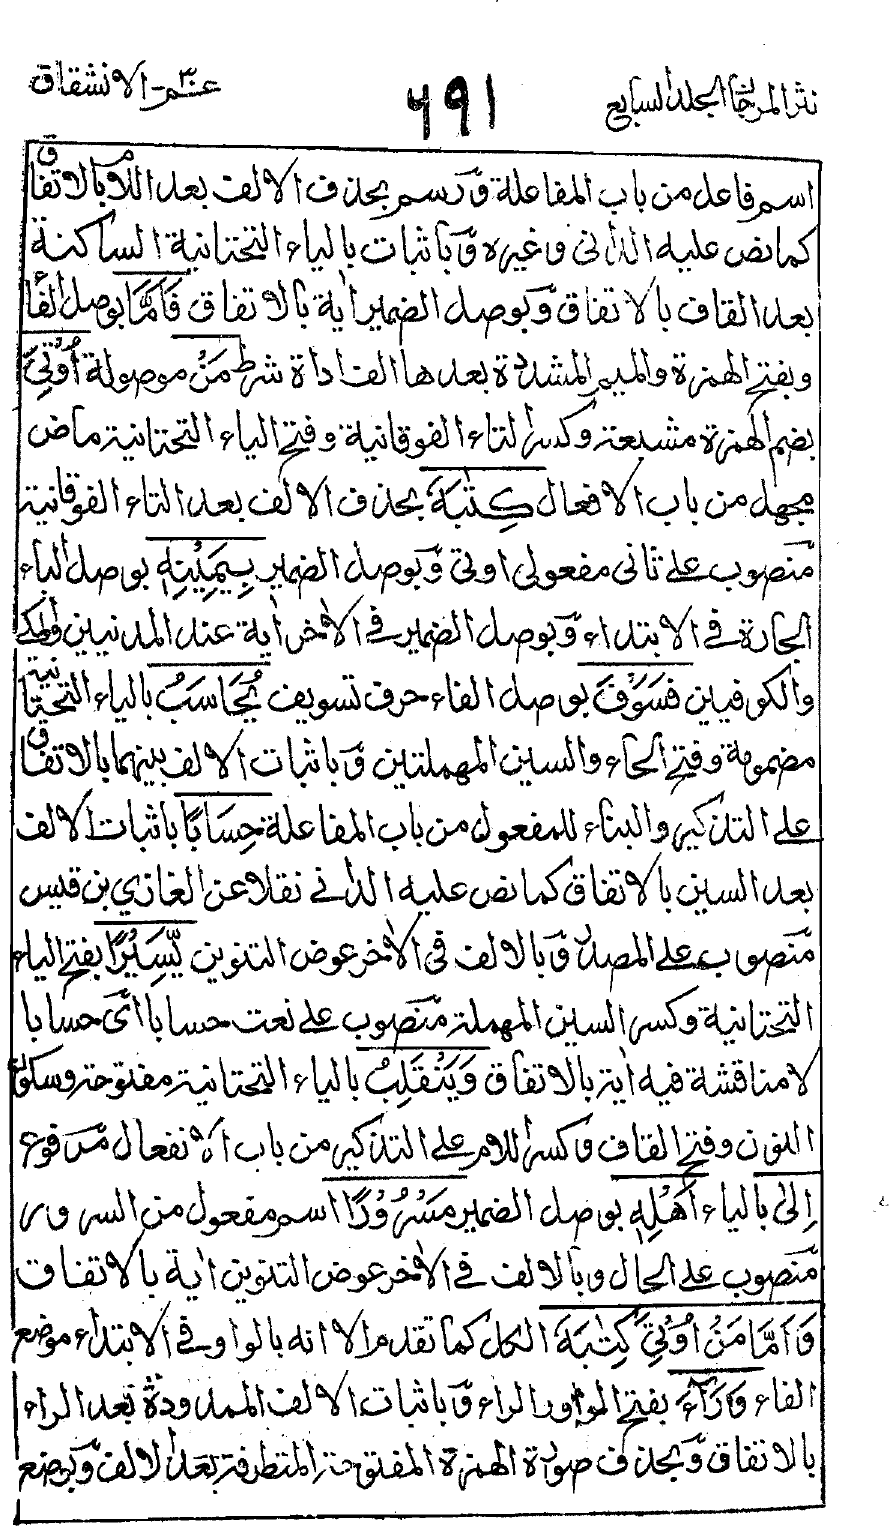 نثر المرجان المجلد السابع
٦٩١
عمّ ٣٠ - الانشقاق
اسم فاعل من باب المفاعلة ورسم بحذف الالف بعد اللام بالاتفاق
كما نص عليه الداني وغيره وباثبات بالياء التحتانية الساكنة
بعد القاف بالاتفاق وبوصل الضمير اية بالاتفاق فَاَمَّا بوصل الفاء
وبفتح الهمزة والميم المشددة بعدها الف اداة شرط مَنْ موصولة اُوْتِيَ
بضم الهمزة مشبعة وكسر التاء الفوقانية وفتح الياء التحتانية ماض
مجهل من باب الافعال كِتٰبَهٗ بحذف الالف بعد التاء الفوقانية
منصوب على ثاني مفعولى اوتى وبوصل الضمير بِيَمِيْنِهٖ بوصل الباء
الجارة في الابتداء وبوصل الضمير في الاٰخر اية عند المدنيين والمكي
والكوفيين فَسَوْفَ بوصل الفاء حرف تسويف يُحَاسَبُ بالياء التحتانية
مضمومة وفتح الحاء والسين المهملتين وباثبات الالف بينهما بالاتفاق
على التذكير والبناء للمفعول من باب المفاعلة حِسَابًا باثبات الالف
بعد السين بالاتفاق كما نص عليه الداني نقلا عن الغازي بن قيس
منصوب على المصدر وبالالف في الاٰخر عوض التنوين يَّسِيْرًا بفتح الياء
التحتانية وكسر السين المهملة منصوب على نعت حسابا اى حسابا
لا مناقشة فيه اية بالاتفاق وَيَنْقَلِبُ بالياء التحتانية مفتوحة وسكون
النون وفتح القاف وكسر اللام على التذكير من باب الانفعال مرفوع
اِلٰى بالياء اَهْلِهٖ بوصل الضمير مَسْرُوْرًا اسم مفعول من السرور
منصوب على الحال وبالالف في الاٰخر عوض التنوين اية بالاتفاق
وَاَمَّا مَنْ اُوْتِيَ كِتٰبَهٗ الكل كما تقدم الا انه بالواو في الابتداء موضع
الفاء وَرَآءَ بفتح الواو والراء وباثبات الالف الممدودة بعد الراء
بالاتفاق وبحذف صورة الهمزة المفتوحة المتطرفة بعد الالف وبوضع